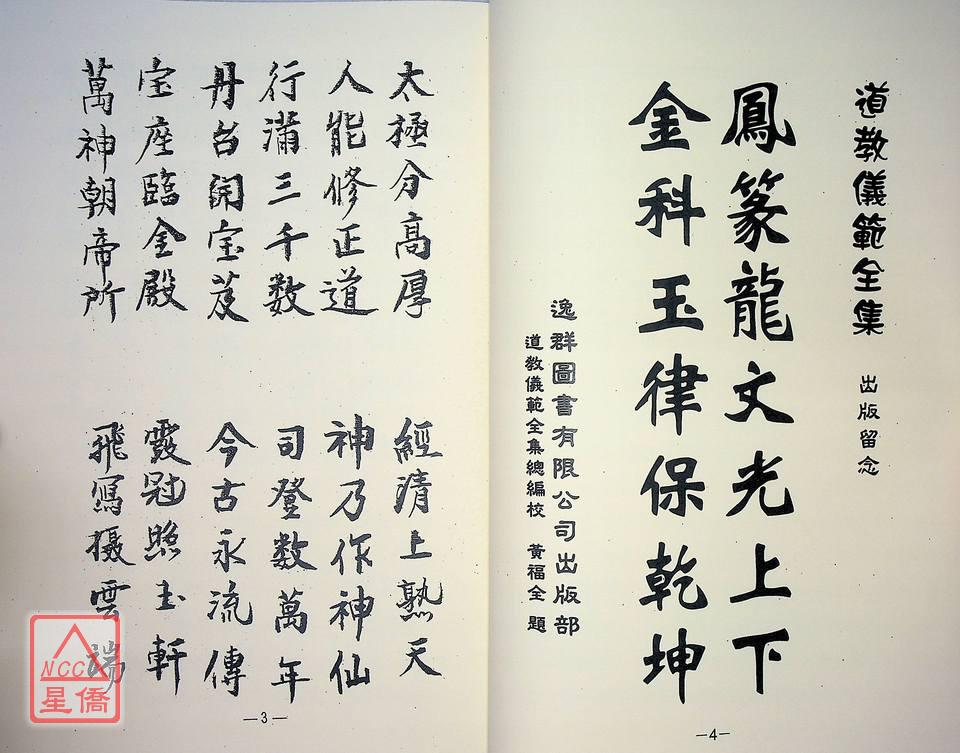 道教儀範全集 出版留念
鳳篆龍文光上下
金科玉律保乾坤
逸群圖書有限公司出版部
道教儀範全集總編校 黃福全 題
—4—
太極分高厚 經清上熟天
人能修正道 神乃作神仙
行滿三千數 司登數萬年
丹台開宝芨 今古永流傳
宝座臨金殿 霞冠照玉軒
萬神朝帝所 飛寫摄雲端
—3—
NCC
星僑